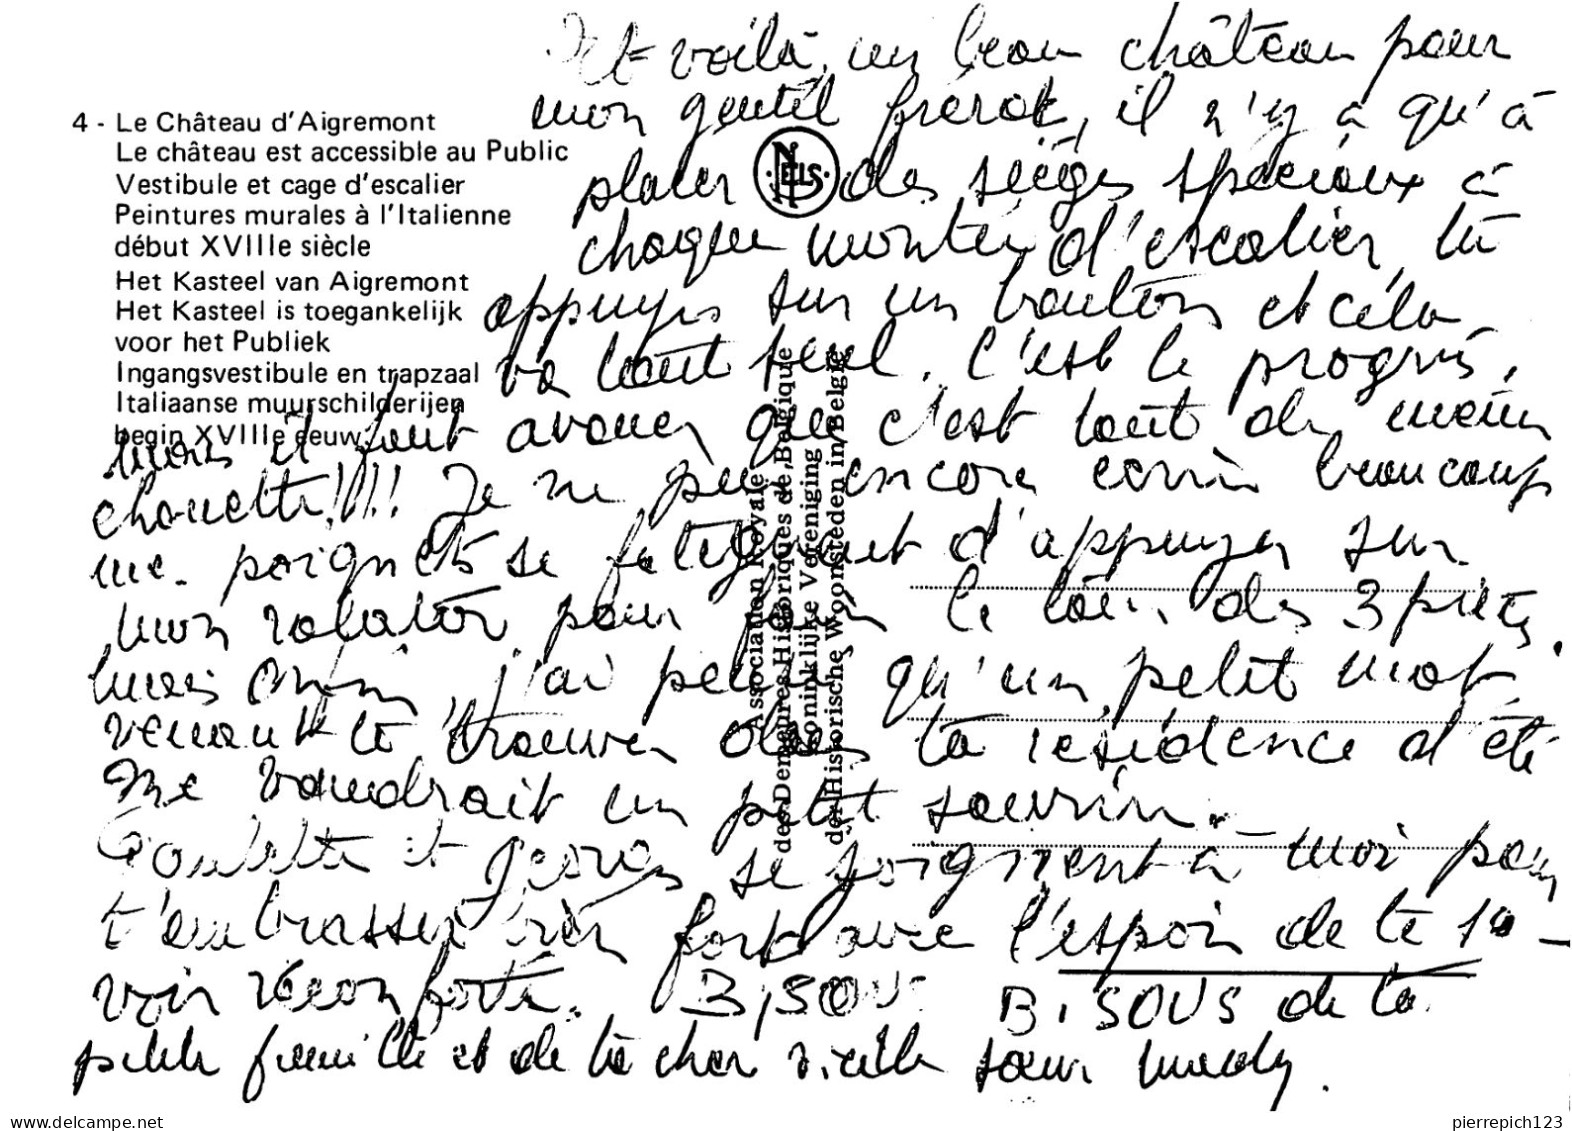 Et voilà, un beau château pour
mon gentil frérot, il n'y a qu'à
placer des sièges spéciaux à
chaque montée d'escalier, tu
appuyes sur un bouton et cela
va tout seul. C'est le progrès,
mais il faut avouer que c'est tout de même
chouette!!!! Je ne peux encore écrire beaucoup
me. poignets se fatiguent d'appuyer sur
mon rolator pour faire le tour des 3 pièces.
mais j'ai pensé qu'un petit mot
venant te trouver dans ta résidence d'été
me vaudrait un petit sourire.
Paulette et Georges se joignent à moi pour
t'embrasser très fort avec l'espoir de te re-
voir réconforté. BISOUS BISOUS de ta
petite famille et de ta chère vieille sœur Mady.
4 - Le Château d'Aigremont
Le château est accessible au Public
Vestibule et cage d'escalier
Peintures murales à l'Italienne
début XVIIIe siècle
Het Kasteel van Aigremont
Het Kasteel is toegankelijk
voor het Publiek
Ingangsvestibule en trapzaal
Italiaanse muurschilderijen
begin XVIIIe eeuw
NELS
Association Royale
des Demeures Historiques de Belgique
Koninklijke Vereniging
der Historische Woonsteden in België
www.delcampe.net
pierrepich123